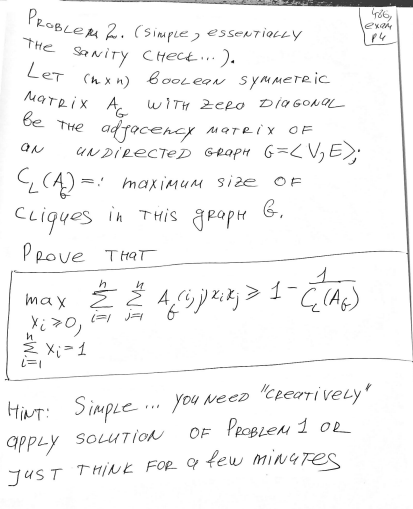 PROBLEM 2. (SIMPLE, ESSENTIALLY
THE SANITY CHECK...).
486,
exam
P4
LET (n×n) BOOLEAN SYMMETRIC
MATRIX A_G WITH ZERO DIAGONAL
BE THE adjacency MATRIX OF
AN UNDIRECTED GRAPH G=<V,E>;
C_L(A_G)=: MAXIMUM SIZE OF
cliques in THIS graph G.
PROVE THAT
max_{x_i ≥ 0, Σ_{i=1}^{n} x_i = 1} Σ_{i=1}^{n} Σ_{j=1}^{n} A_G(i,j) x_i x_j ≥ 1 - 1/C_L(A_G)
HINT: SIMPLE... YOU NEED "CREATIVELY"
APPLY SOLUTION OF PROBLEM 1 OR
JUST THINK FOR a few MINUTES